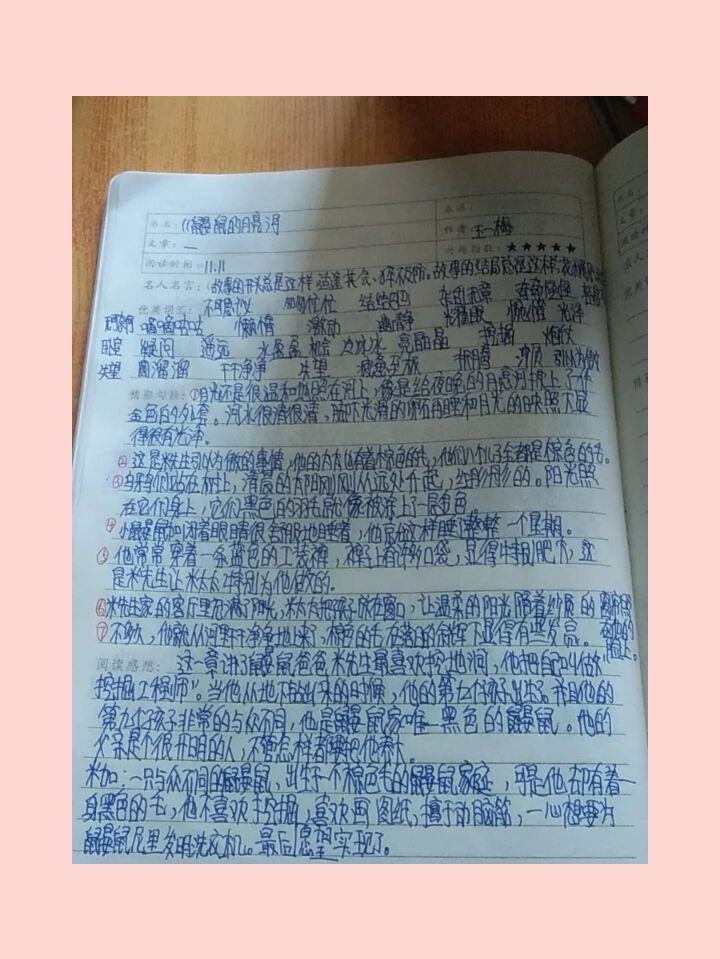 书名：《鼹鼠的月亮河
文章：一
作者 王一梅
兴趣指数：★★★★★
阅读时间：11.11
名人名言：(故事的开头总是这样 适逢其会、猝不及防。故事的结局总是这样，花
优美词汇：不可思议 结结巴巴 杂乱无章
嘀嘀咕咕 懒惰 激动 幽静 光泽
卧室 疑问 遥远 水盈盈 机会 凉冰冰 亮晶晶 挖掘
失望 圆溜溜 干干净净 失望 引以为傲
精彩句段：①月光还是很温和地照在河上，像是给夜晚的月亮河披上了件
金色的外套。河水很清很清，脸下光滑的在月光的映照下显
得很有光泽。
②这是米先生引以为傲的事情，他的太太也有着棕色的毛，他们八个儿子全都是棕色的毛。
③乌鸦们站在树上，清晨的太阳刚刚从远处升起，红彤彤的。阳光照
在它们身上，它们黑色的羽毛就像被涂上了一层金色
④小鼹鼠米加闭着眼睛很舒服地睡着，他就这样睡了整整一个星期。
⑤他常常穿着一条蓝色的工装裤，裤子上有许多口袋，显得特别肥大，这
是米先生让米太太特别为他做的。
⑥米先生家的客厅里充满了阳光，米太太把孩子放在窗口，让温柔的阳光隔着纱质的窗帘照在他的脸上。
⑦不多久，他就从河里干干净净地上来了，棕色的毛在落日的斜辉下显得有些发亮。
阅读感想：这一章讲了鼹鼠爸爸米先生最喜欢挖地洞，他把自己叫做“
挖掘工程师”。当他从地下钻出来的时候，他的第九个孩子出生了。并且他的
第九个孩子非常的与众不同，他是鼹鼠家唯一黑色的鼹鼠。他的
父亲是个很开明的人，不管怎样都要把他养大。
米加：一只与众不同的鼹鼠，出生于一个棕色毛的鼹鼠家庭，可是他却有着一
身黑色的毛，他不喜欢挖掘，喜欢画图纸，擅于动脑筋，一心想要为
鼹鼠尼里发明洗衣机。最后愿望实现了。